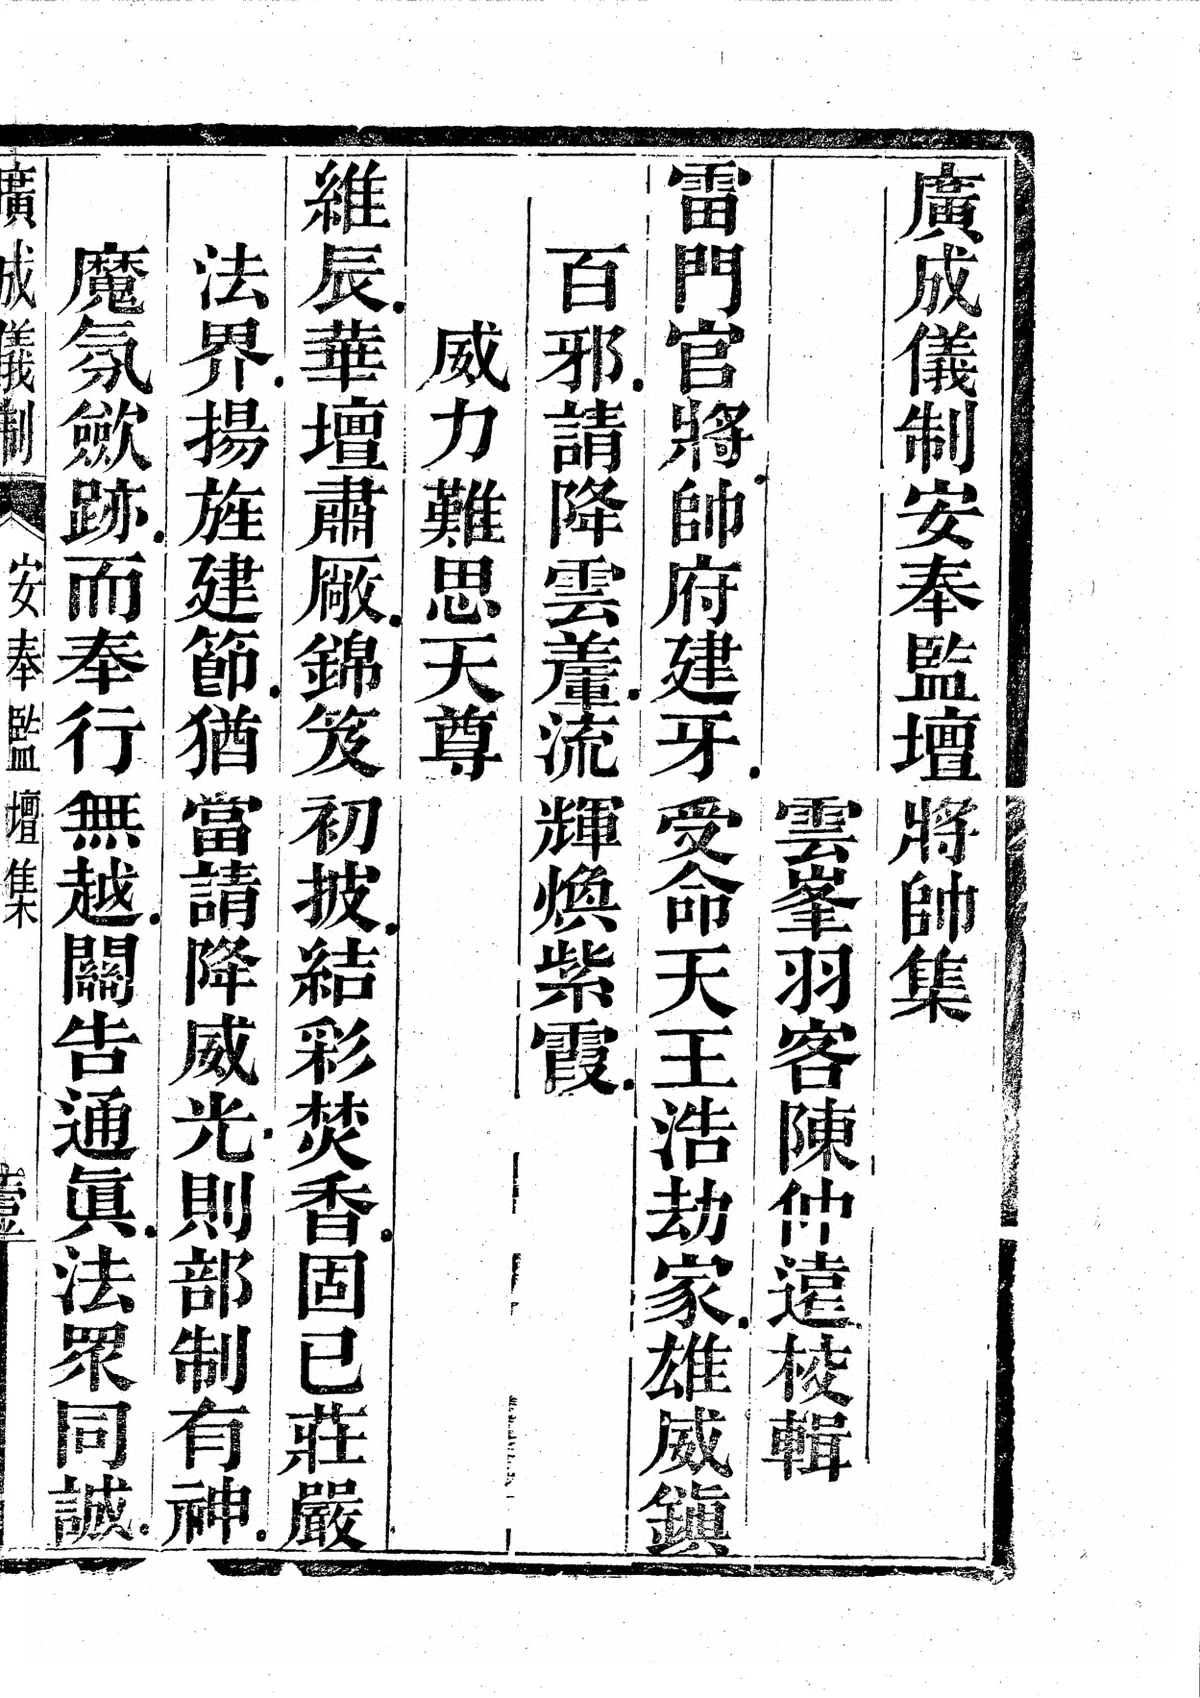 廣成儀制安奉監壇將帥集
雲峯羽客陳仲遠校輯
雷門官將帥府建牙受命天王浩劫家雄威鎮
百邪請降雲輦流輝煥紫霞
威力難思天尊
維辰華壇肅厰錦笈初披結彩焚香固已莊嚴
法界揚旌建節猶當請降威光則部制有神
魔氛歛跡而奉行無越關告通眞法眾同誠
廣成儀制 安奉監壇集 壹